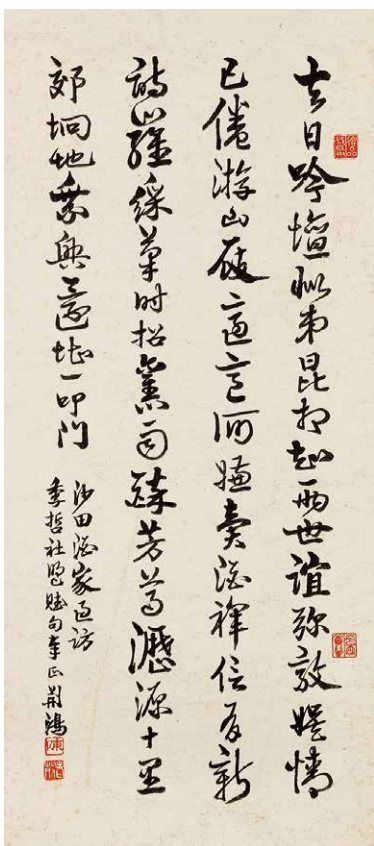 去日吟壇似弟昆相知兩世誼彌敦娛情
已倦游山屐適意何嫌賣酒褌信有新
詩綵筆時招舊雨醉芳尊瀝源十里
郊坰地乘興還堪一叩門
沙田酒家過訪
季哲社盟賦句奉正 荊鴻